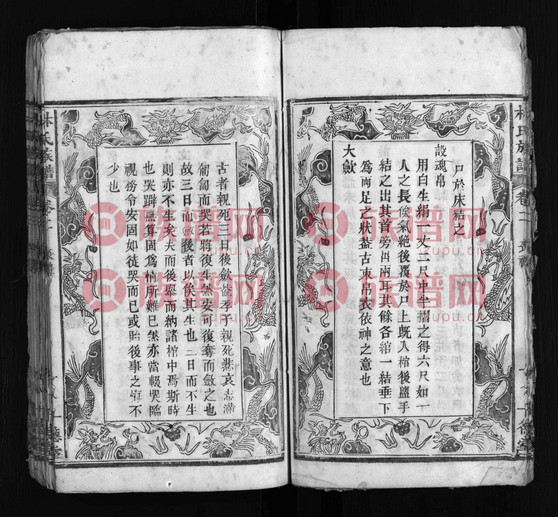 林氏族譜 卷二
尸於床結之
設魂帛
用白生絹一丈二尺中坐摺之得六尺如一
人之長俟氣絕後覆於尸上既入棺後盥手
結之出其首旁出兩耳其餘各綰一結垂下
為両足之狀蓋古束帛依神之意也
大斂
古者親死三日後斂孝子親死悲哀志懣
匍匐而哭若將復生然安可復奪而斂之也
故三日而後者以俟其生也三日而不生
則亦不生矣夫而後舉而納諸棺中焉斯時
也哭擗無算固為情所難已然亦當輟哭臨
視務令安固如徒哭而已或貽後事之
少也
林氏族譜 卷二
族譜网
族譜网